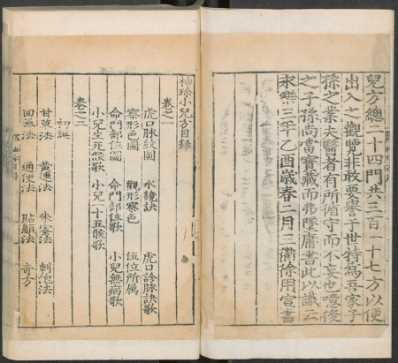 兒方總二十四門共三百一十七方以便
出入之觀覽非敢要譽于世特爲吾家子
孫之業夫醫者有所循守而不妄也噫後
之子孫尚當寶藏而弗墜庸書此以識云
永樂三年乙酉歲春二月三衢徐用宣書
袖珍小兒方目錄
卷之一
虎口脉紋圖 水鏡訣 虎口診脉訣歌
察形色圖 觀形察色 伍位所属
命門部位圖 命門部位歌 小兒無病歌
小兒生死候歌 小兒一十五候歌
卷之二
初誕
甘草法 黃連法 朱蜜法 刺泡法
回氣法 通便法 貼顖法 奇方